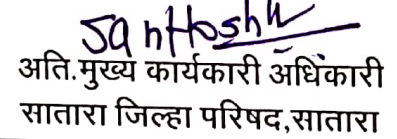 Santosh
अति.मुख्य कार्यकारी अधिकारी
सातारा जिल्हा परिषद,सातारा